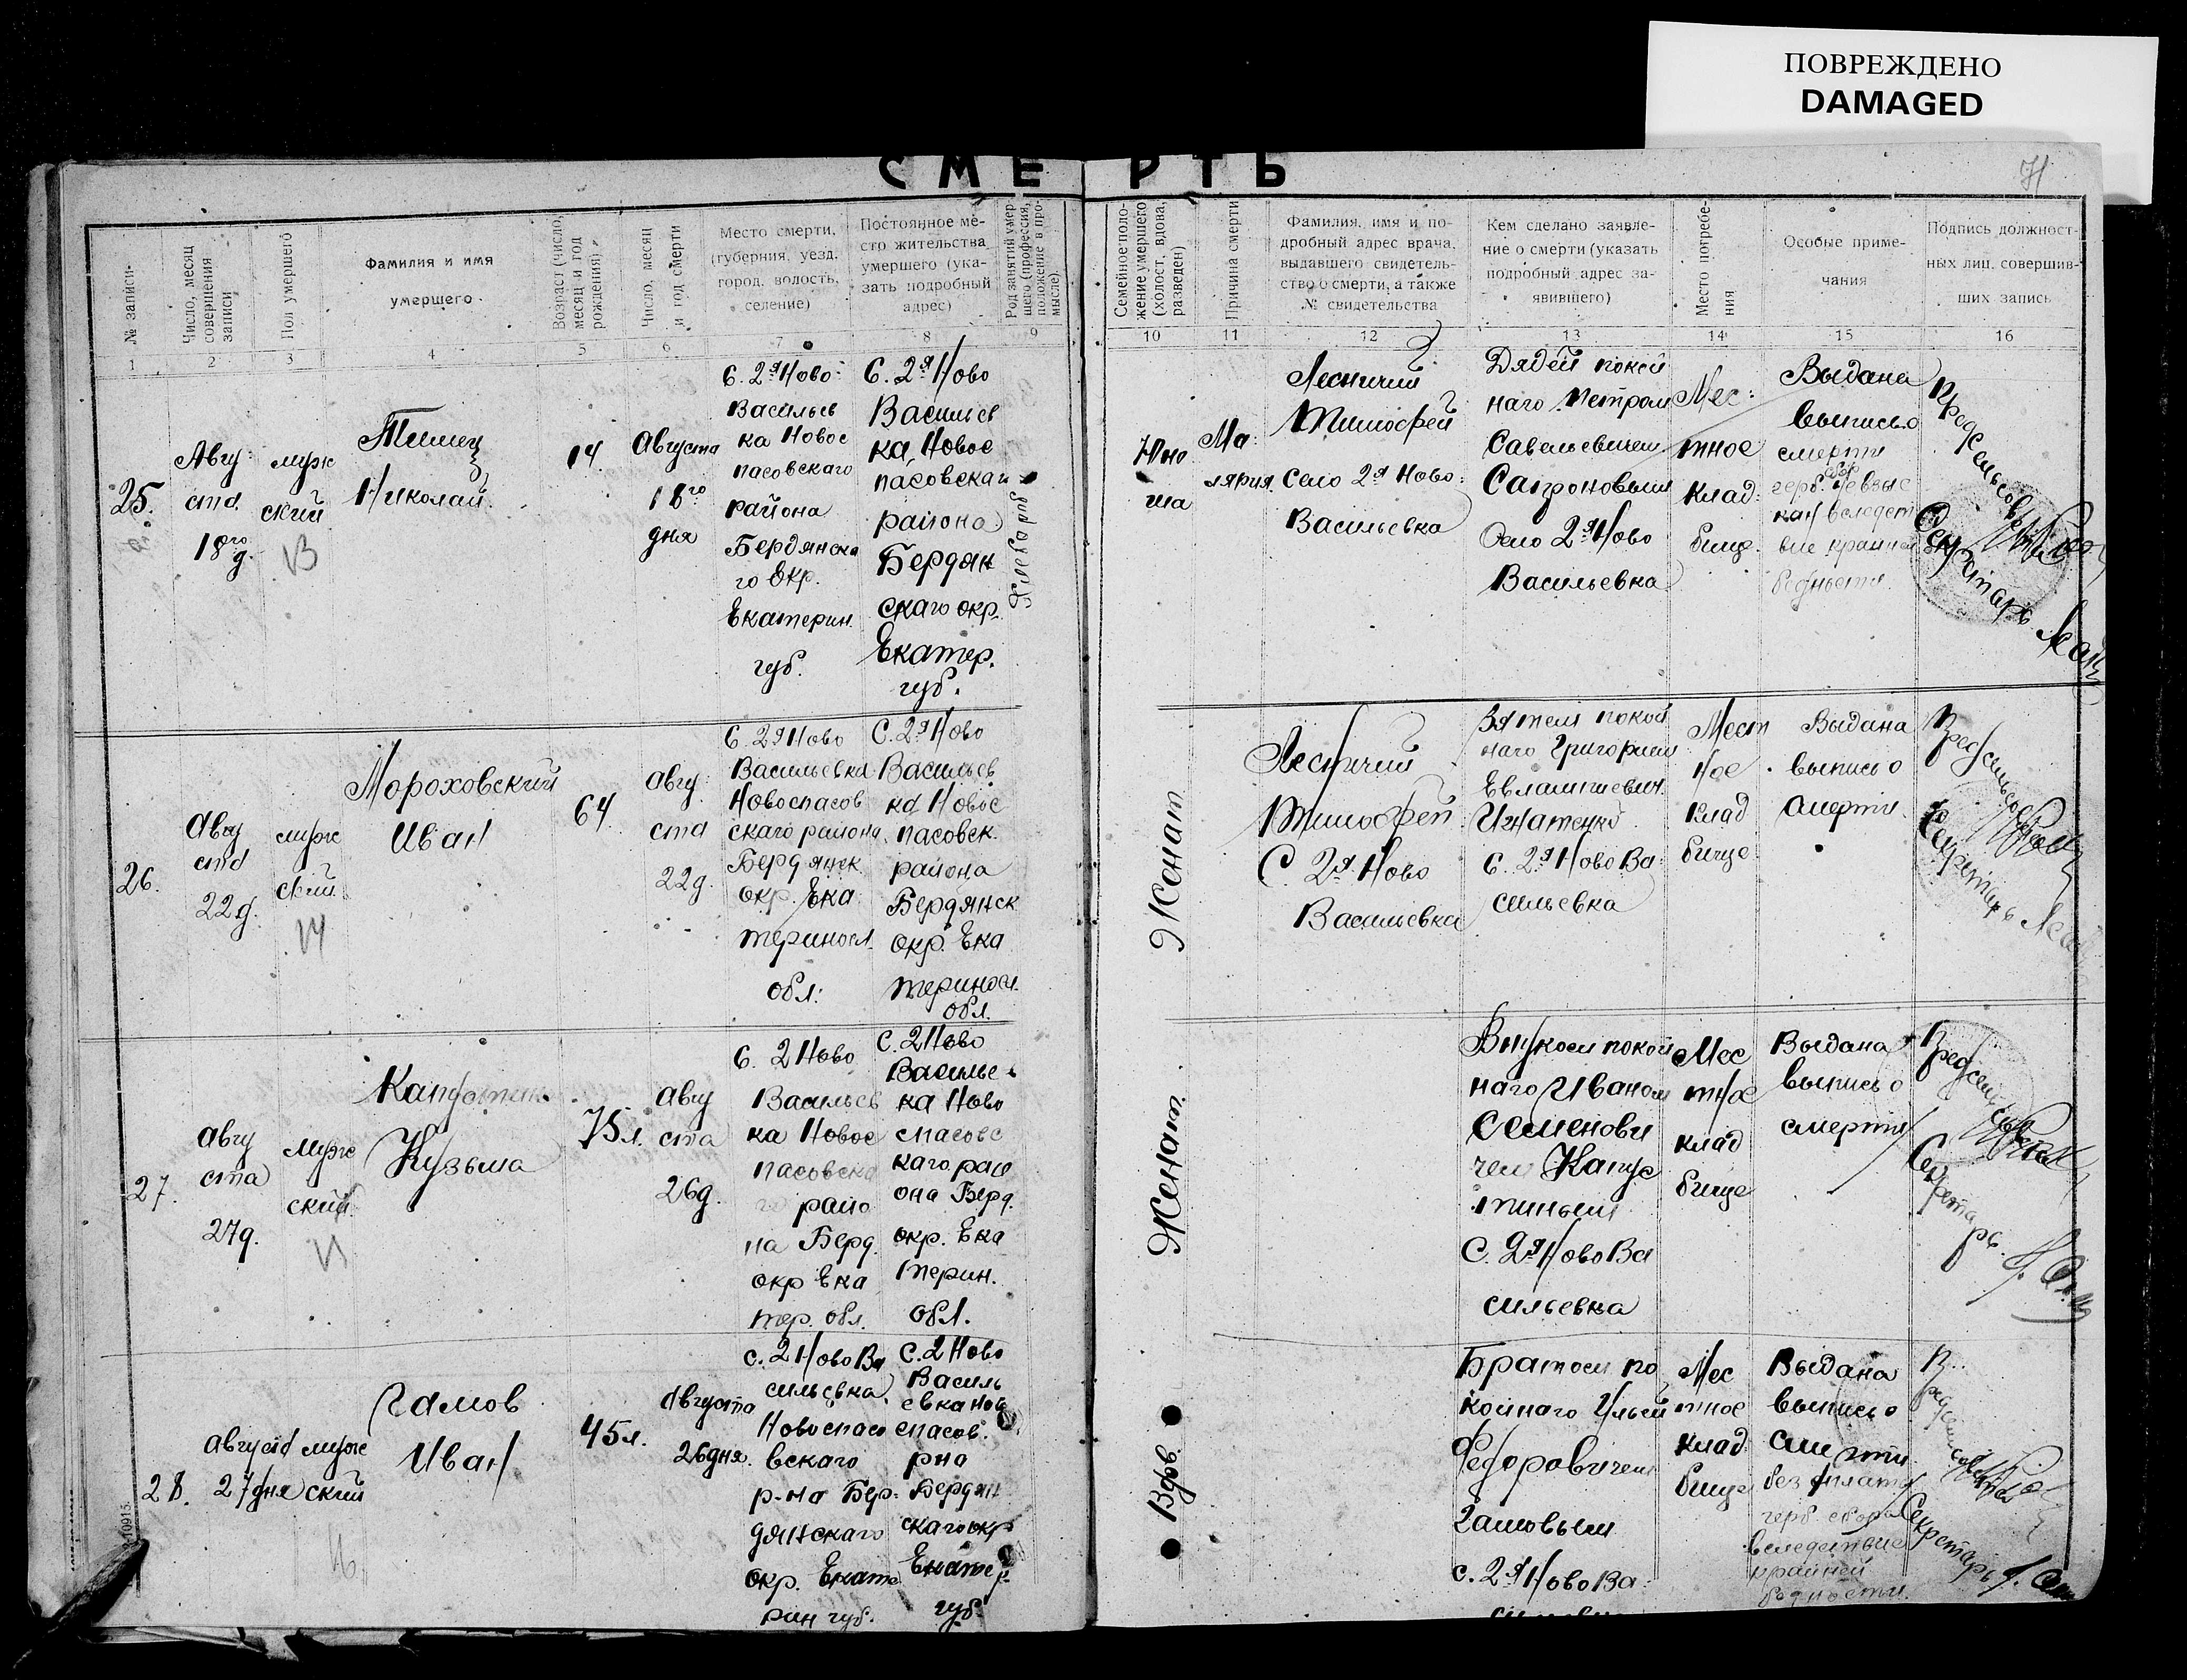 ПОВРЕЖДЕНО
DAMAGED
СМЕРТЬ
71
№ записи
Число, месяц
совершения
записи
Пол умершего
Фамилия и имя
умершего.
Возраст (число,
месяц и год
рождения)
Число, месяц
и год смерти
Место смерти,
(губерния, уезд,
город, волость,
селение)
Постоянное ме-
сто жительства
умершего (ука-
зать подробный
адрес)
Род занятий умер-
шего (профессия,
положение в про-
мысле).
Семейное поло-
жение умершего
(холост, вдова,
разведен)
Причина смерти
Фамилия, имя и по-
дробный адрес врача,
выдавшего свидетель-
ство о смерти, а также
№ свидетельства
Кем сделано заявле-
ние о смерти (указать
подробный адрес за-
явившего)
Место погребе-
ния
Особые приме-
чания
Подпись должност-
ных лиц, совершив-
ших запись
1 2 3 4 5 6 7 8 9 10 11 12 13 14 15 16
25.
Авгу
ста
18го
д.
муж
ский
13
Николай
14
Августа
18го
дня
С. 2я Ново
Васильев
ка Новос
пасовскаго
района
Бердянска
го Окр.
Екатерин.
губ.
С. 2я Ново
Васильев
ка, Новос
пасовскаго
района
Бердян
скаго окр.
Екатер.
губ.
Хлебороб
Юно
ша
Ма
лярия
Лесничий
Тимофей
Село 2я Ново:
Васильевка
Дядей покой
наго Петром
Савельевичем
Сапроновым
Село 2я Ново
Васильевка
Мес:
тное
клад:
бище
Выдана
выпись о
смерти
герб. сбор невзыс
кан вследст
вие крайней
бедности
Предсельсовета
Секретарь
26.
Авгу
ста
22д.
муже
ский
14
Мороховский
Иван
64
авгу
ста
22д.
С. 2я Ново
Васильевка
Новоспасов
скаго района
Бердянск
окр. Ека
теринос.
обл:
С. 2я Ново
Васильев
ка Новос
пасовск.
района
Бердянск
окр. Ека
теринос.
обл.
Женат
Лесничий
Тимофей
С. 2я Ново
Васильевка
Зятем покой
наго Григорием
Евлампиевич.
Игнатенко
С. 2я Ново Ва
сильевка
Мест
ное
клад
бище
Выдана
выпись о
смерти
Предсельсовета
Секретарь
27.
авгу
ста
27д.
муже
ский
Капустин
Кузьма
75л.
авгу
ста
26д.
С. 2 Ново
Васильев
ка Новос
пасовска
го райо
на Берд.
окр Ека
тер. обл.
С. 2 Ново
Василье
ка Ново
спасовс
каго рай
она Берд.
окр. Ека
терин.
обл.
Женат.
Внуком покой
наго Иваном
Семенови
чем Капус
тиным
С. 2я Ново Ва
сильевка
Мес
тное
клад
бище
Выдана
выпись о
смерти
Предсельсовета
Секретарь
28.
августа
27 дня
муже
ский
16
Гамов
Иван
45л.
августа
26дня
с. 2 Ново Ва
сильевка
Новоспасо
вскаго
р-на Бер-
дянскаго
окр. Екате
рин губ.
С. 2 Ново
Василь
евка Ново
спасов.
рна
Бердян
скаго окр
Екатер
губ.
Вдов
Братом по
койнаго Ильей
Федоровичем
Гамовым
с. 2я Ново Ва
Мес
тное
клад
бище
Выдана
выпись о
смерти
без оплаты
герб. сбора
вследствие
крайней
бедности.
Предсельсовета
Секретарь
10915.